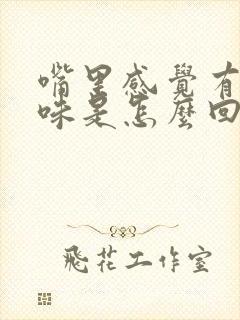 嘴里感覺有
味是怎麼回
飛花工作室